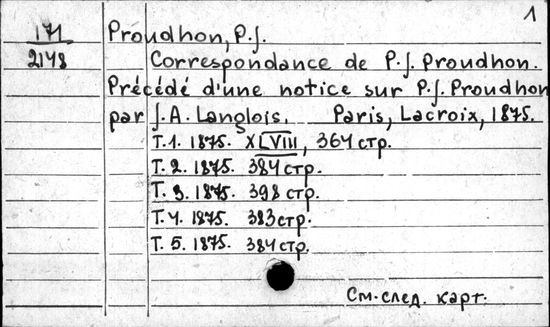 1
171 Proudhon, P.J.
2148 Correspondance de P.J. Proudhon.
Précédé d'une notice sur P.J. Proudhon
par J.A. Langlois. Paris, Lacroix, 1875.
T.1. 1875. XLVIII, 364 стр.
T.2. 1875. 384 стр.
T.3. 1875. 398 стр.
T.4. 1875. 383 стр.
T.5. 1875. 384 стр.
См. след. карт.